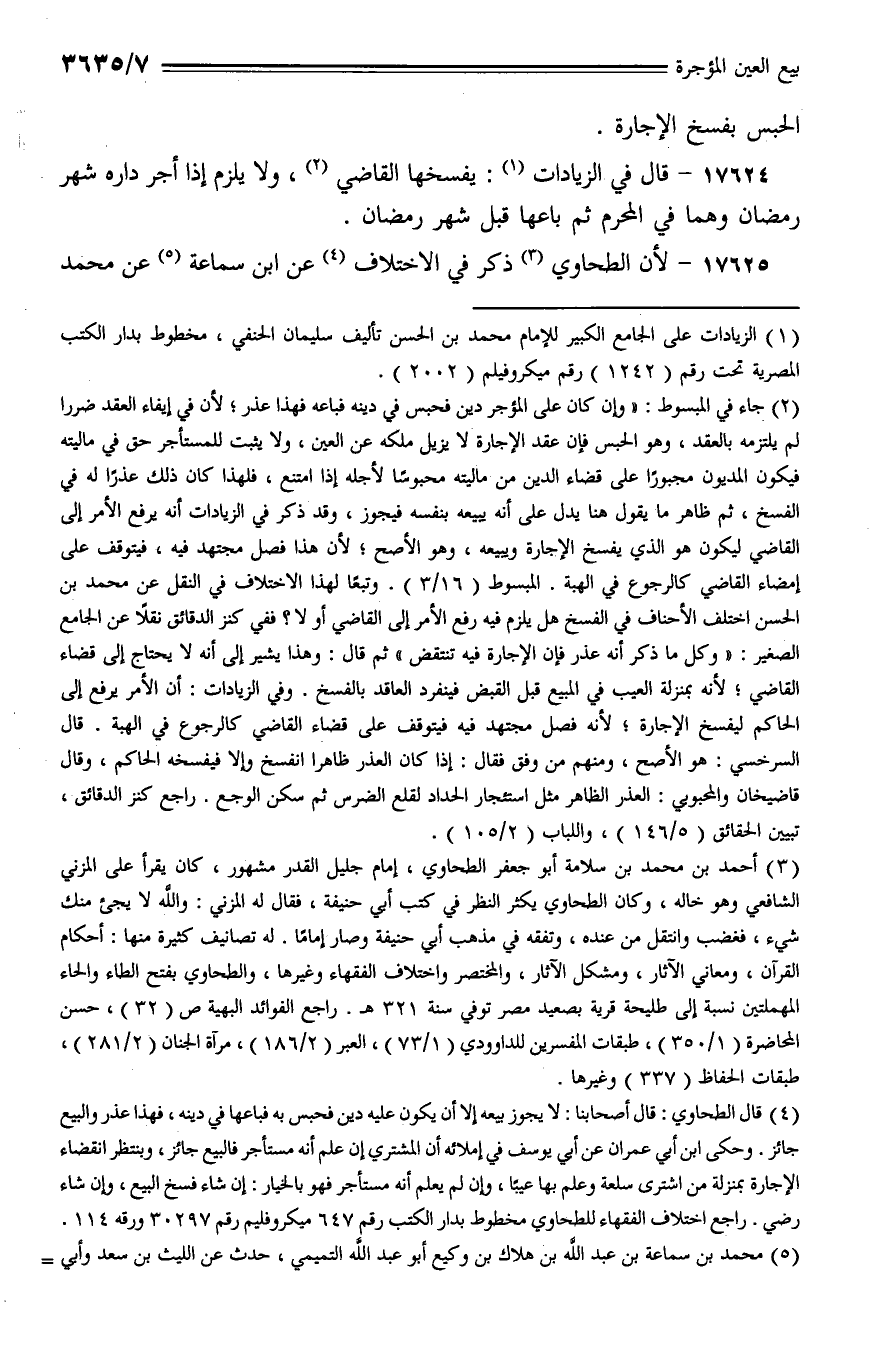 بيع العين المؤجرة ٣٦٣٥/٧
الحبس بفسخ الإجارة .
١٧٦٢٤ - قال في الزيادات (١) : يفسخها القاضي (٢) ، ولا يلزم إذا أجر داره شهر
رمضان وهما في المحرم ثم باعها قبل شهر رمضان .
١٧٦٢٥ - لأن الطحاوي (٣) ذكر في الاختلاف (٤) عن ابن سماعة (٥) عن محمد
(١) الزيادات على الجامع الكبير للإمام محمد بن الحسن تأليف سليمان الحنفي ، مخطوط بدار الكتب
المصرية تحت رقم ( ١٢٤٢ ) رقم ميكروفيلم ( ٢٠٠٢ ) .
(٢) جاء في المبسوط : « وإن كان على المؤجر دين فحبس في دينه فباعه فهذا عذر ؛ لأن في إيفاء العقد ضررا
لم يلتزمه بالعقد ، وهو الحبس فإن عقد الإجارة لا يزيل ملكه عن العين ، ولا يثبت للمستأجر حق في ماليته
فيكون المديون مجبورًا على قضاء الدين من ماليته محبوسًا لأجله إذا امتنع ، فلهذا كان ذلك عذرًا له في
الفسخ ، ثم ظاهر ما يقول هنا يدل على أنه يبيعه بنفسه فيجوز ، وقد ذكر في الزيادات أنه يرفع الأمر إلى
القاضي ليكون هو الذي يفسخ الإجارة ويبيعه ، وهو الأصح ؛ لأن هذا فصل مجتهد فيه ، فيتوقف على
إمضاء القاضي كالرجوع في الهبة . المبسوط ( ٣/١٦ ) . وتبعًا لهذا الاختلاف في النقل عن محمد بن
الحسن اختلف الأحناف في الفسخ هل يلزم فيه رفع الأمر إلى القاضي أو لا ؟ ففي كنز الدقائق نقلًا عن الجامع
الصغير : « وكل ما ذكر أنه عذر فإن الإجارة فيه تنتقض » ثم قال : وهذا يشير إلى أنه لا يحتاج إلى قضاء
القاضي ؛ لأنه بمنزلة العيب في المبيع قبل القبض فينفرد العاقد بالفسخ . وفي الزيادات : أن الأمر يرفع إلى
الحاكم ليفسخ الإجارة ؛ لأنه فصل مجتهد فيه فيتوقف على قضاء القاضي كالرجوع في الهبة . قال
السرخسي : هو الأصح ، ومنهم من وفق فقال : إذا كان العذر ظاهرا انفسخ وإلا فيفسخه الحاكم ، وقال
قاضيخان والمحبوبي : العذر الظاهر مثل استئجار الحداد لقلع الضرس ثم سكن الوجع . راجع كنز الدقائق ،
تبيين الحقائق ( ١٤٦/٥ ) ، واللباب ( ١٠٥/٢ ) .
(٣) أحمد بن محمد بن سلامة أبو جعفر الطحاوي ، إمام جليل القدر مشهور ، كان يقرأ على المزني
الشافعي وهو خاله ، وكان الطحاوي يكثر النظر في كتب أبي حنيفة ، فقال له المزني : والله لا يجئ منك
شيء ، فغضب وانتقل من عنده ، وتفقه في مذهب أبي حنيفة وصار إمامًا . له تصانيف كثيرة منها : أحكام
القرآن ، ومعاني الآثار ، ومشكل الآثار ، والمختصر واختلاف الفقهاء وغيرها ، والطحاوي بفتح الطاء والحاء
المهملتين نسبة إلى طليحة قرية بصعيد مصر توفي سنة ٣٢١ هـ . راجع الفوائد البهية ص ( ٣٢ ) ، حسن
المحاضرة ( ٣٥٠/١ ) ، طبقات المفسرين للداوودي ( ٧٣/١ ) ، العبر ( ١٨٦/٢ ) ، مرآة الجنان ( ٢٨١/٢ ) ،
طبقات الحفاظ ( ٣٣٧ ) وغيرها .
(٤) قال الطحاوي : قال أصحابنا : لا يجوز بيعه إلا أن يكون عليه دين فحبس به فباعها في دينه ، فهذا عذر والبيع
جائز . وحكى ابن أبي عمران عن أبي يوسف في إملائه أن المشتري إن علم أنه مستأجر فالبيع جائز ، وينتظر انقضاء
الإجارة بمنزلة من اشترى سلعة وعلم بها عيبًا ، وإن لم يعلم أنه مستأجر فهو بالخيار : إن شاء فسخ البيع ، وإن شاء
رضي . راجع اختلاف الفقهاء للطحاوي مخطوط بدار الكتب رقم ٦٤٧ ميكروفليم رقم ٣٠٢٩٧ ورقه ١١٤ .
(٥) محمد بن سماعة بن عبد الله بن هلاك بن وكيع أبو عبد الله التميمي ، حدث عن الليث بن سعد وأبي =